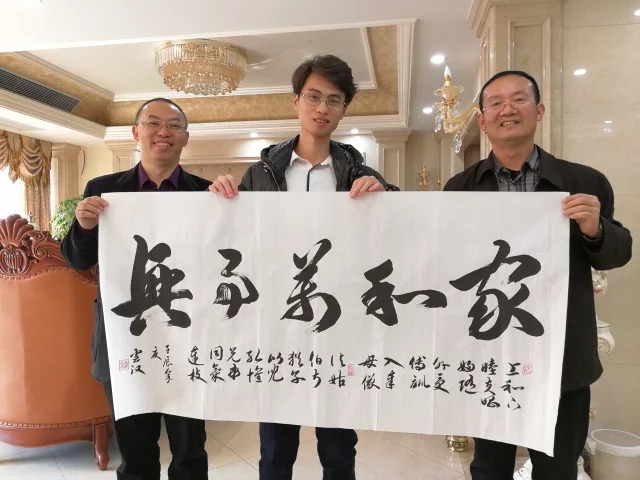 家和萬事興
上和下
睦夫唱
婦隨
外受
傅訓
入奉
母儀
諸姑
伯叔
猶子
比兒
孔懷
兄弟
同氣
連枝
雲汉